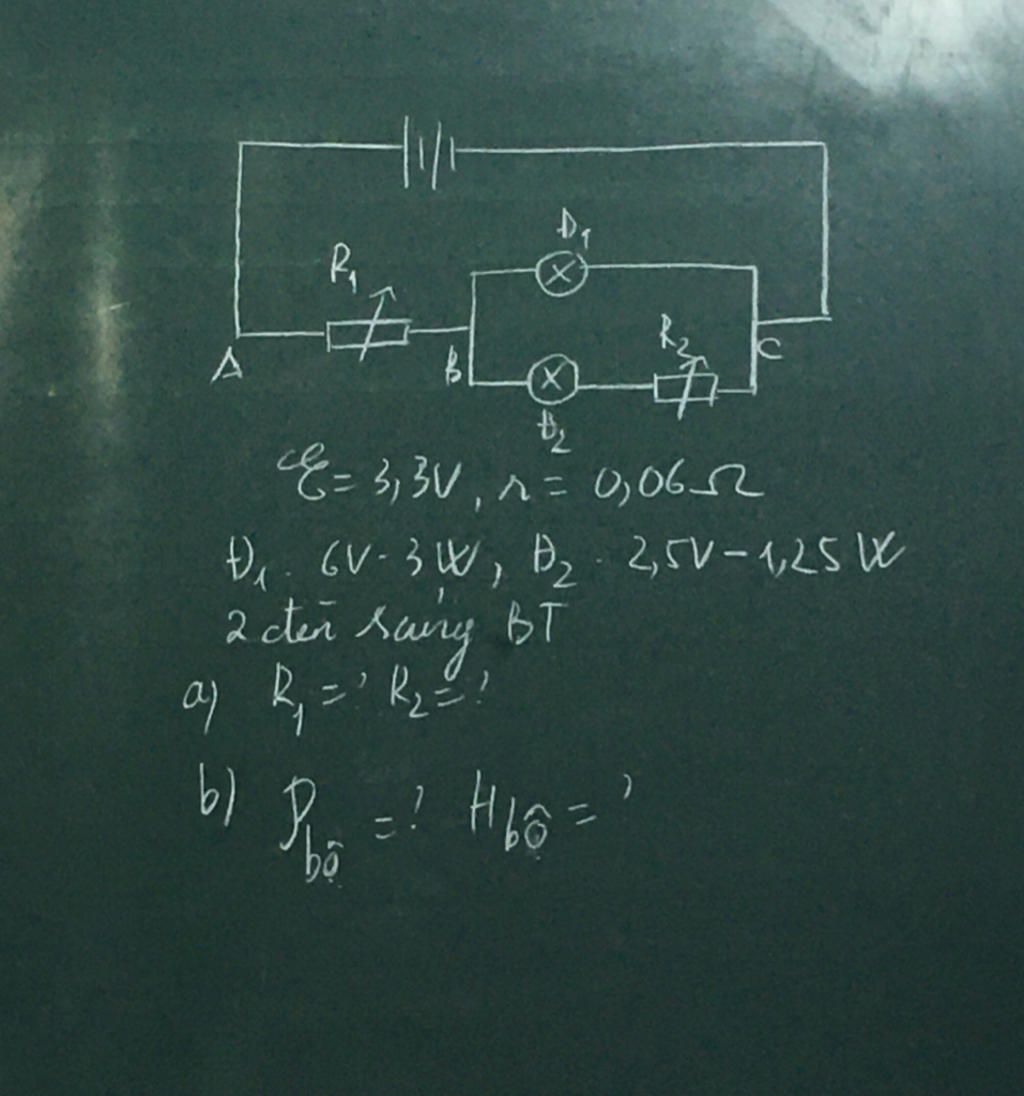 Đ₁
R₁
R₂
A
B
C
Đ₂
ℰ = 3,3V, r = 0,06Ω
Đ₁. 6V - 3W, Đ₂. 2,5V - 1,25W
2 đèn sáng BT
a) R₁ = ? R₂ = ?
b) P bộ = ? H bộ = ?